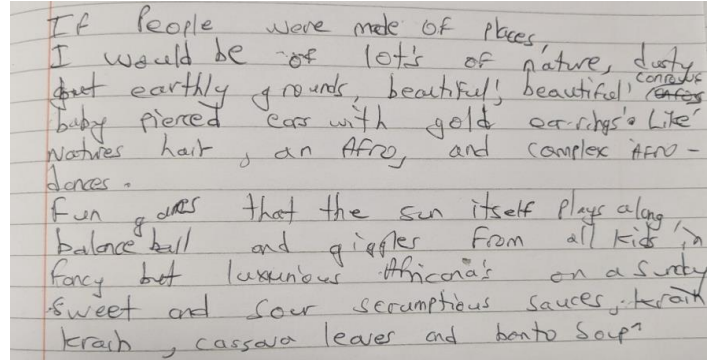 If People were made of places,
I would be of lot's of nature, dusty
but earthly grounds, beautiful, beautiful
baby pierced ears with gold ear-rings. Like
Natures hair, an Afro, and complex Afro-
dances.
fun games that the sun itself plays along,
balance ball and giggles from all kids in
fancy but luxxurious Africana's on a sunday
sweet and sour scrumptious sauces, krain
krain, cassava leaves and banto soup